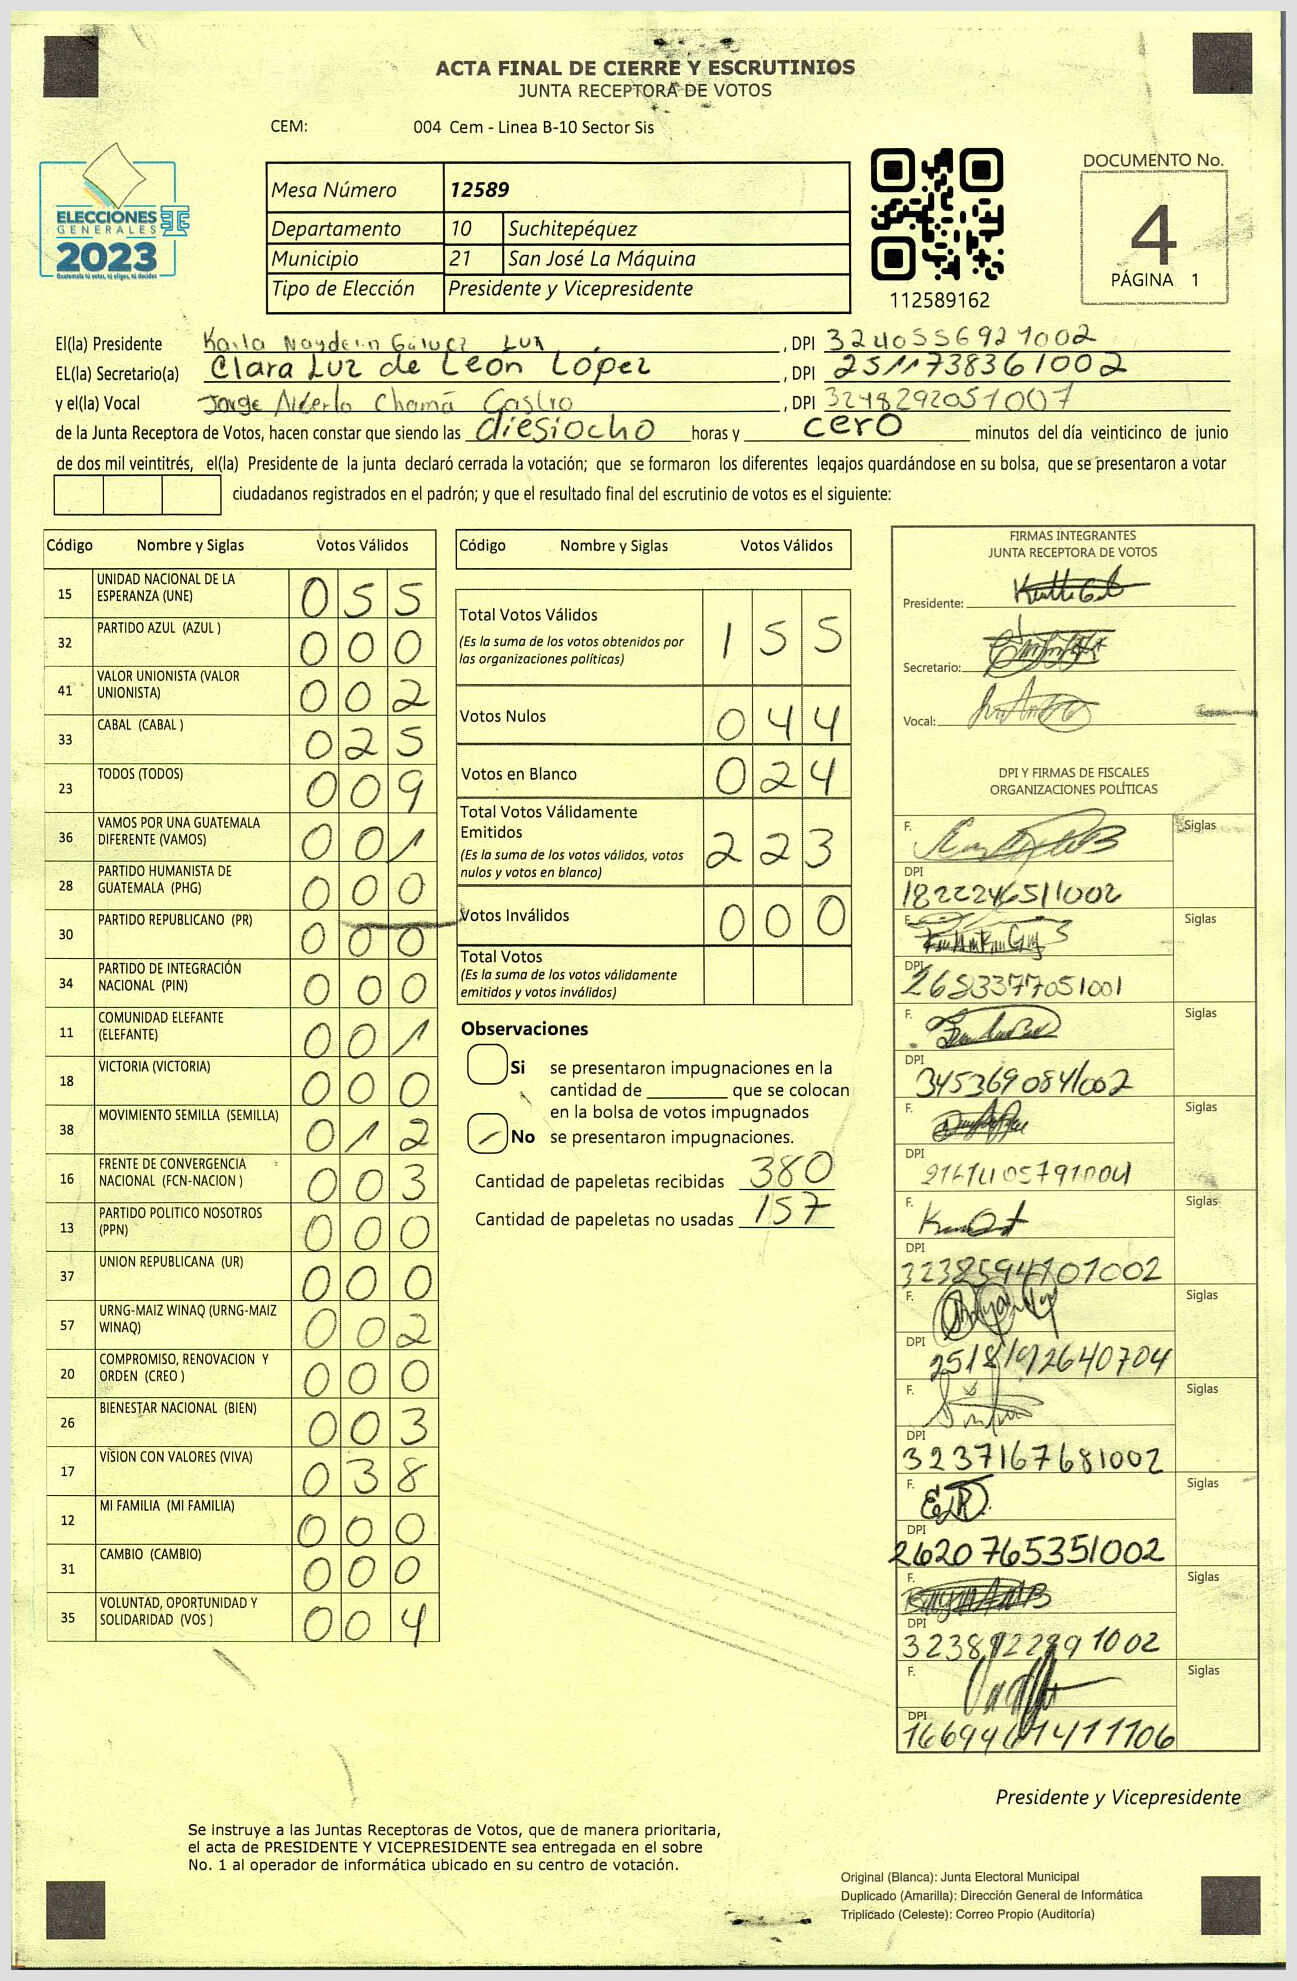 ACTA FINAL DE CIERRE Y ESCRUTINIOS
JUNTA RECEPTORA DE VOTOS
CEM: 004 Cem - Linea B-10 Sector Sis
ELECCIONES
GENERALES
2023
Guatemala tú votas, tú eliges, tú decides
Mesa Número 12589
Departamento 10 Suchitepéquez
Municipio 21 San José La Máquina
Tipo de Elección Presidente y Vicepresidente
112589162
DOCUMENTO No.
4
PÁGINA 1
El(la) Presidente Karla , DPI 3240556921002
EL(la) Secretario(a) Clara Luz de León López , DPI 2511738361002
y el(la) Vocal Jorge Alberto Chamá Castro , DPI 3248292051007
de la Junta Receptora de Votos, hacen constar que siendo las diesiocho horas y cero minutos del día veinticinco de junio
de dos mil veintitrés, el(la) Presidente de la junta declaró cerrada la votación; que se formaron los diferentes legajos guardándose en su bolsa, que se presentaron a votar
ciudadanos registrados en el padrón; y que el resultado final del escrutinio de votos es el siguiente:
Código Nombre y Siglas Votos Válidos
15 UNIDAD NACIONAL DE LA ESPERANZA (UNE) 055
32 PARTIDO AZUL (AZUL ) 000
41 VALOR UNIONISTA (VALOR UNIONISTA) 002
33 CABAL (CABAL ) 025
23 TODOS (TODOS) 009
36 VAMOS POR UNA GUATEMALA DIFERENTE (VAMOS) 001
28 PARTIDO HUMANISTA DE GUATEMALA (PHG) 000
30 PARTIDO REPUBLICANO (PR) 000
34 PARTIDO DE INTEGRACIÓN NACIONAL (PIN) 000
11 COMUNIDAD ELEFANTE (ELEFANTE) 001
18 VICTORIA (VICTORIA) 000
38 MOVIMIENTO SEMILLA (SEMILLA) 012
16 FRENTE DE CONVERGENCIA NACIONAL (FCN-NACION ) 003
13 PARTIDO POLITICO NOSOTROS (PPN) 000
37 UNION REPUBLICANA (UR) 000
57 URNG-MAIZ WINAQ (URNG-MAIZ WINAQ) 002
20 COMPROMISO, RENOVACION Y ORDEN (CREO ) 000
26 BIENESTAR NACIONAL (BIEN) 003
17 VISION CON VALORES (VIVA) 038
12 MI FAMILIA (MI FAMILIA) 000
31 CAMBIO (CAMBIO) 000
35 VOLUNTAD, OPORTUNIDAD Y SOLIDARIDAD (VOS ) 004
Código Nombre y Siglas Votos Válidos
Total Votos Válidos 155
(Es la suma de los votos obtenidos por
las organizaciones políticas)
Votos Nulos 044
Votos en Blanco 024
Total Votos Válidamente
Emitidos 223
(Es la suma de los votos válidos, votos
nulos y votos en blanco)
Votos Inválidos 000
Total Votos
(Es la suma de los votos válidamente
emitidos y votos inválidos)
Observaciones
Si se presentaron impugnaciones en la
cantidad de ________ que se colocan
en la bolsa de votos impugnados
No se presentaron impugnaciones.
Cantidad de papeletas recibidas 380
Cantidad de papeletas no usadas 157
FIRMAS INTEGRANTES
JUNTA RECEPTORA DE VOTOS
Presidente:
Secretario:
Vocal:
DPI Y FIRMAS DE FISCALES
ORGANIZACIONES POLÍTICAS
F. Siglas
DPI
1822246511002
F. Siglas
DPI
2683377051001
F. Siglas
DPI
3453690841002
F. Siglas
DPI
F. Siglas
DPI
3238594101002
F. Siglas
DPI
F. Siglas
DPI
3237167681002
F. Siglas
DPI
2620765351002
F. Siglas
DPI
F. Siglas
DPI
Presidente y Vicepresidente
Se instruye a las Juntas Receptoras de Votos, que de manera prioritaria,
el acta de PRESIDENTE Y VICEPRESIDENTE sea entregada en el sobre
No. 1 al operador de informática ubicado en su centro de votación.
Original (Blanca): Junta Electoral Municipal
Duplicado (Amarilla): Dirección General de Informática
Triplicado (Celeste): Correo Propio (Auditoría)